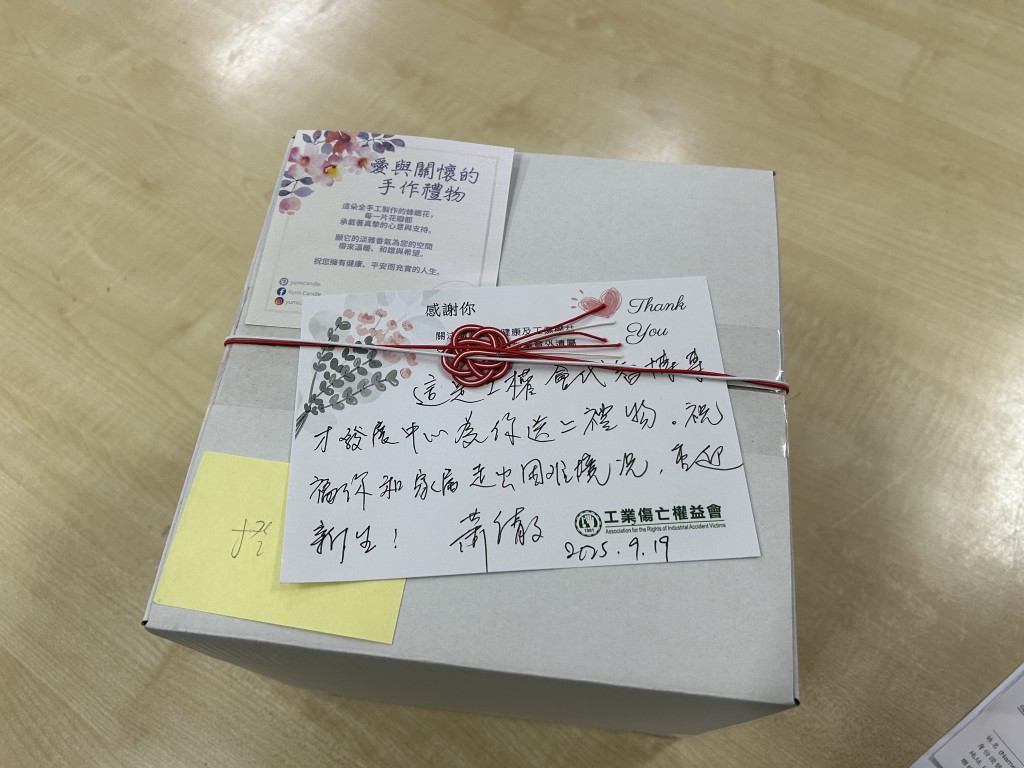 愛與關懷的
手作禮物
這朵全手工製作的蜂蠟花,
每一片花瓣都
承載著真摯的心意與支持。
願它的淡雅香氣為您的空間
帶來溫暖、和諧與希望。
祝您擁有健康、平安而充實的人生。
yumicandle
Yumi Candle
yumic
感謝你
Thank
You
關注
健康及工業傷亡
遺屬
這是工權會代
才發展中心為你送上禮物。祝
福你和家屬走出困難境況,重迎
新生!
2025.9.19
工業傷亡權益會
Association for the Rights of Industrial Accident Victims
姓名 (Name